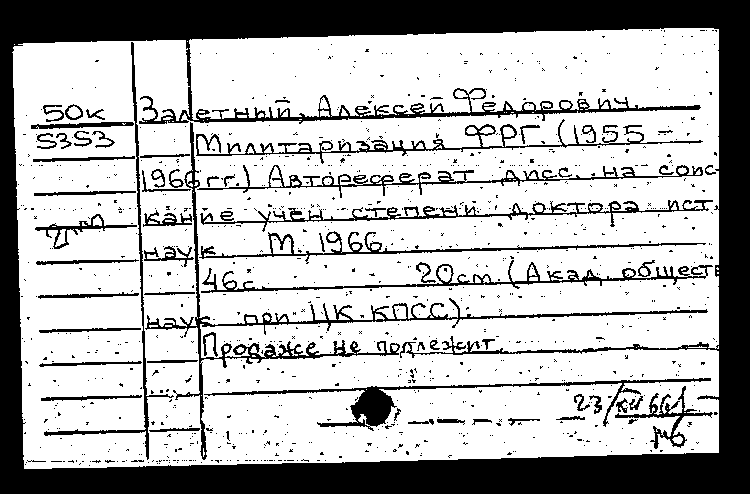 50к Залетный, Алексей Федорович.
S3S3 Милитаризация ФРГ. (1955 -
1966 гг.) Автореферат дисс. на соис-
кание учен. степени доктора ист.
наук. М., 1966.
46с. 20см. (Акад. обществ
наук при ЦК КПСС).
Продаже не подлежит.
23/XII 66